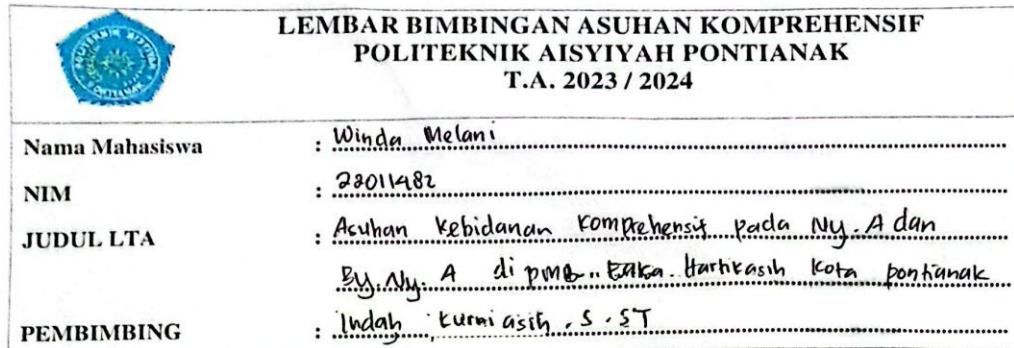 LEMBAR BIMBINGAN ASUHAN KOMPREHENSIF
POLITEKNIK AISYIYAH PONTIANAK
T.A. 2023 / 2024
Nama Mahasiswa : Winda Melani
NIM : 22011482
JUDUL LTA : Asuhan kebidanan komprehensif pada Ny. A dan
By. Ny. A di pmb Hartikasih kota pontianak
PEMBIMBING : Indah kurniasih . S . ST